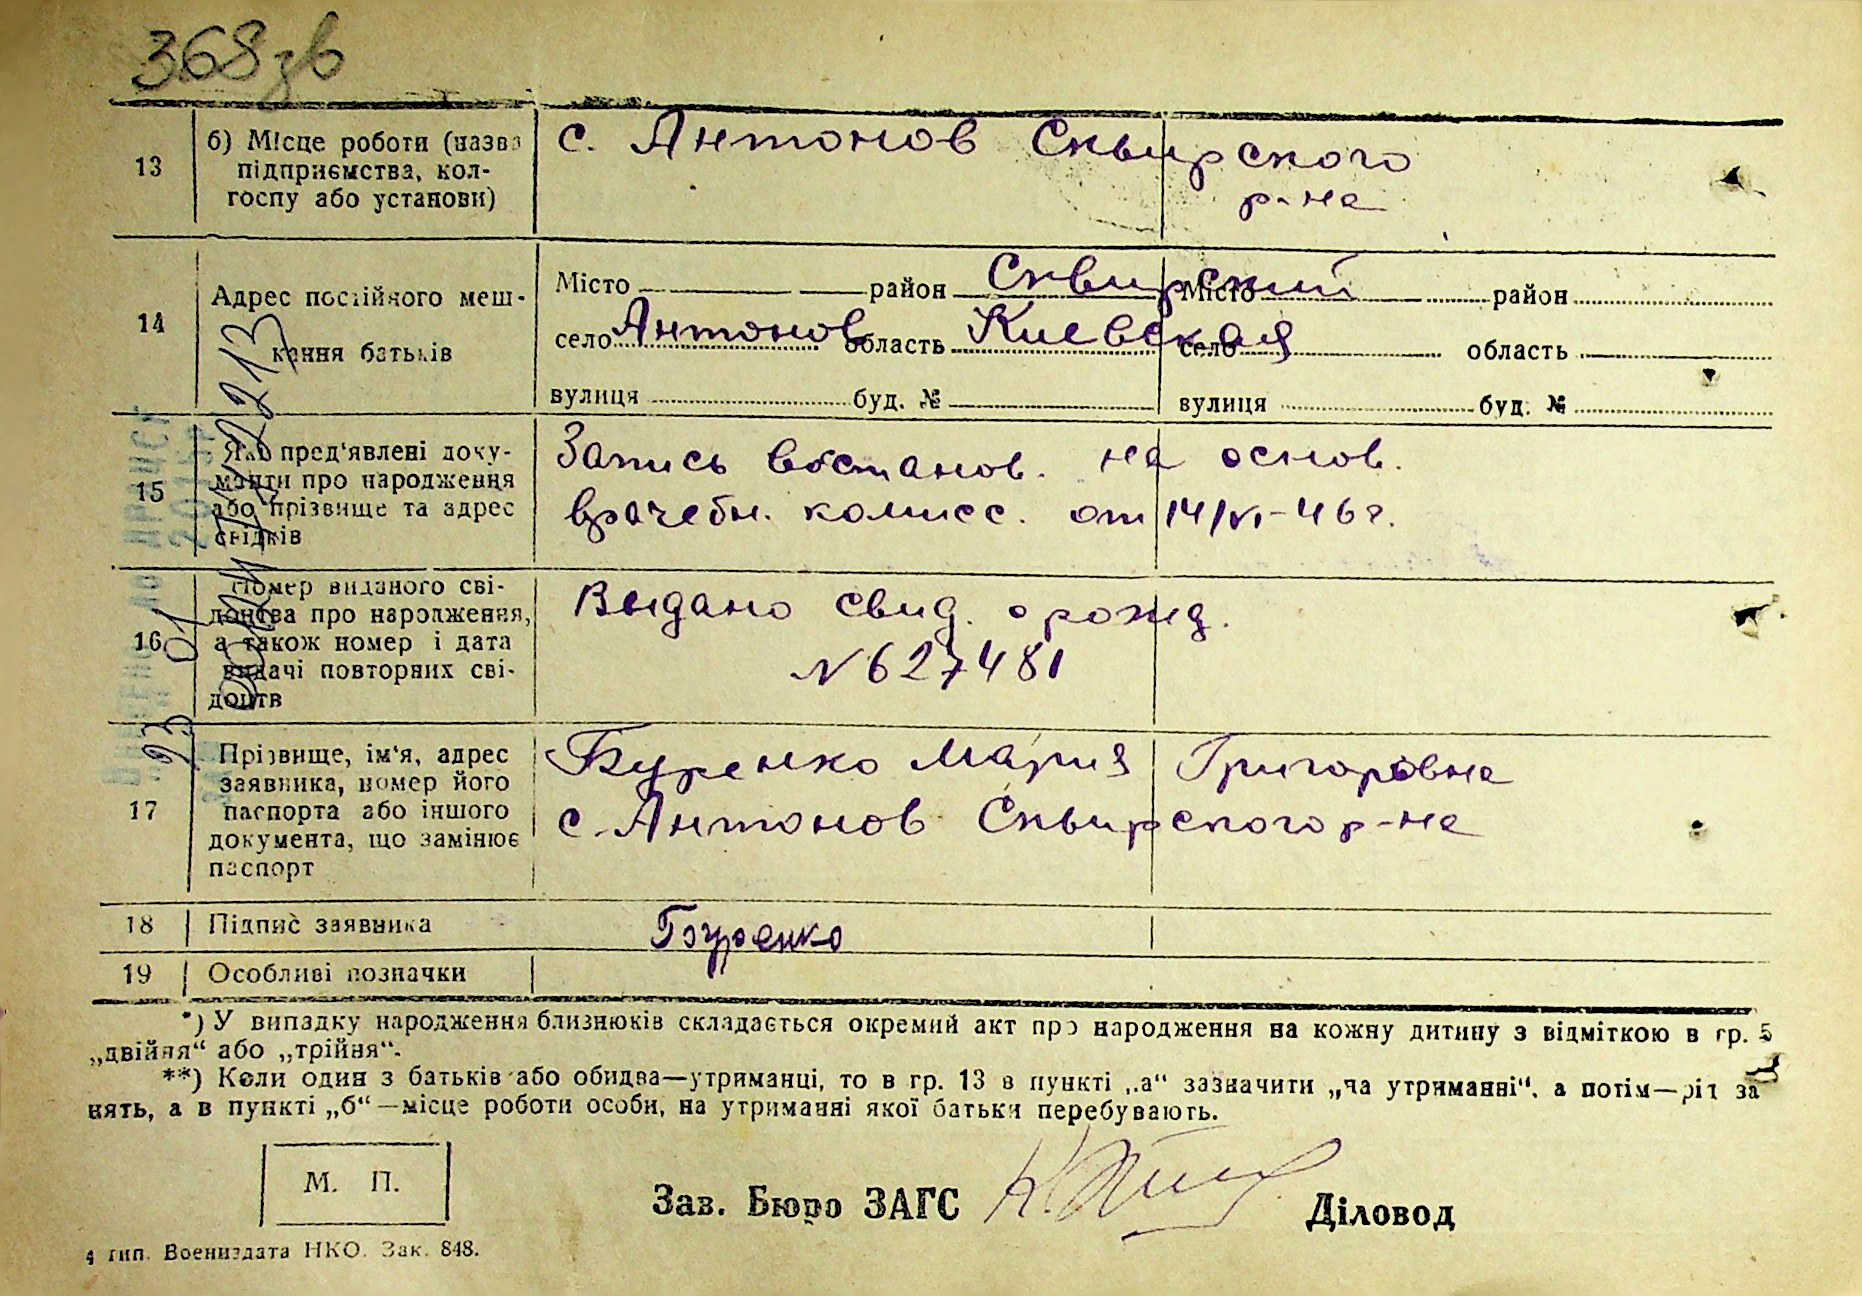 368зв
13
б) Місце роботи (назва
підприємства, кол-
госпу або установи)
с. Антонов Сквирского
р-на
14
Адрес постійного меш-
кання батьків
Місто район Сквирский
село Антонов область Киевская
вулиця буд. №
Місто район
село область
вулиця буд. №
15
Які пред'явлені доку-
менти про народження
або прізвище та адрес
свідків
Запись востанов. на основ.
врачебн. комисс. от 14/VI-46г.
16
Номер виданого сві-
доцтва про народження,
а також номер і дата
видачі повторних сві-
доцтв
Выдано свид. о рожд.
№ 627481
17
Прізвище, ім'я, адрес
заявника, номер його
паспорта або іншого
документа, що замінює
паспорт
Буренко Мария Григоровна
с. Антонов Сквирского р-на
18
Підпис заявника
Буренко
19
Особливі позначки
*) У випадку народження близнюків складається окремий акт про народження на кожну дитину з відміткою в гр. 5
„двійня“ або „трійня“.
**) Коли один з батьків або обидва—утриманці, то в гр. 13 в пункті „а“ зазначити „на утриманні“, а потім—рід за
нять, а в пункті „б“—місце роботи особи, на утриманні якої батьки перебувають.
М. П.
Зав. Бюро ЗАГС
Діловод
4 тип. Воениздата НКО. Зак. 848.